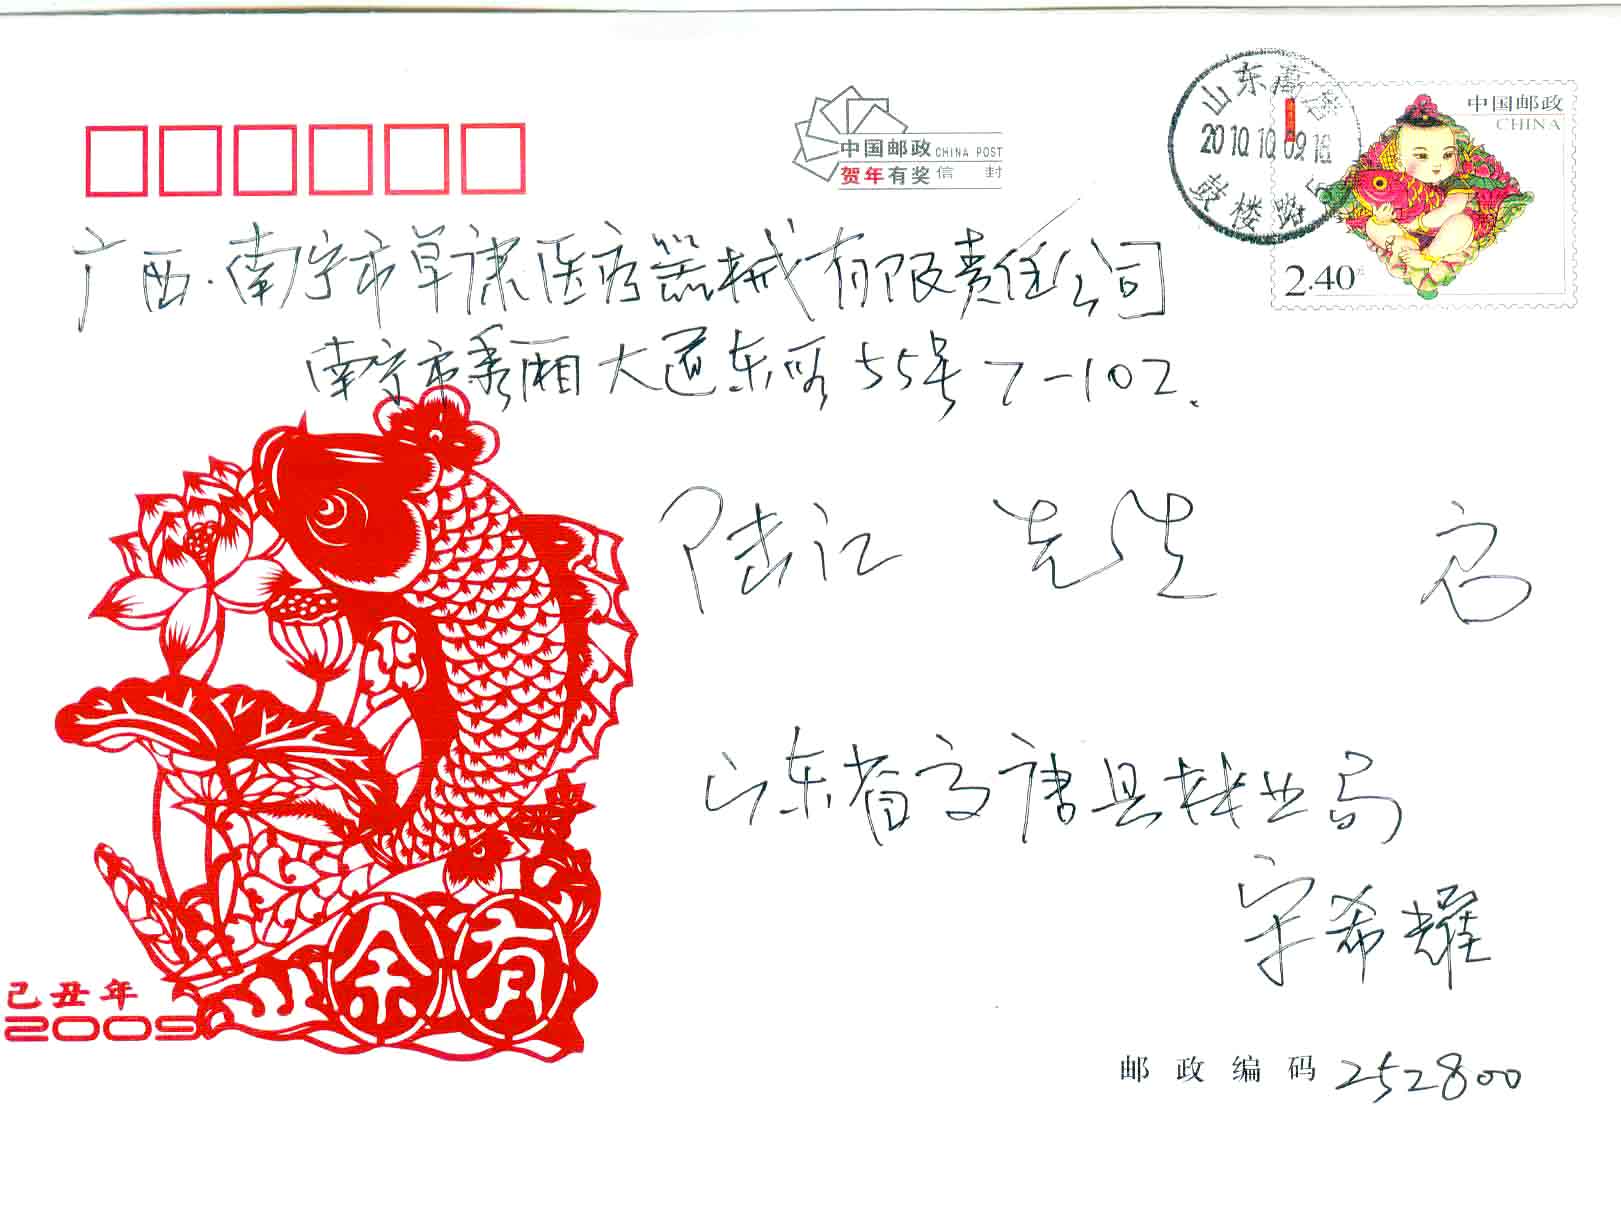 山东高唐
2010.10.09.18
鼓楼路
中国邮政
CHINA
2.40元
中国邮政 CHINA POST
贺年有奖信封
广西·南宁市卓康医疗器械有限责任公司
南宁市秀厢大道东段55号7-102.
陆江 先生 启
山东省高唐县林业局
宋希耀
余有
己丑年
2009
邮政编码 252800